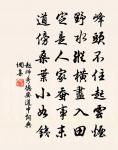 峰頭不住起雲煙
野水縱橫盡入田
定是人家蠶事未
道傍桑葉小如錢